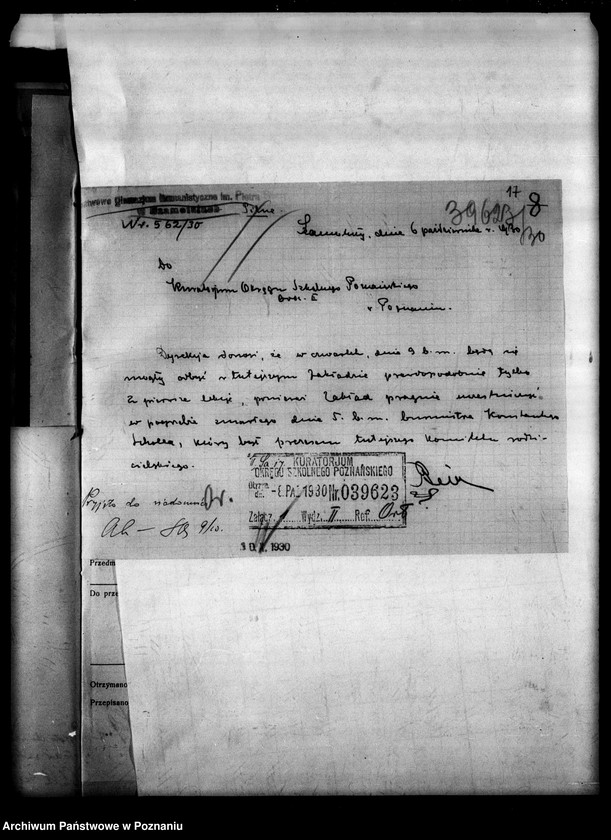 17
39623/8
/30
Gimnazjum Humanistyczne im. Piotra
w Szamotułach
Pilne.
Nr. 562/30
Szamotuły, dnia 6 października r. 1930
Do
Kuratorjum Okręgu Szkolnego Poznańskiego
w Poznaniu.
Dyrekcja donosi, że w czwartek, dnia 9 b.m. będą się
mogły odbyć w tutejszym Zakładzie prawdopodobnie tylko
2 pierwsze lekcje, ponieważ Zakład pragnie uczestniczyć
w pogrzebie zmarłego dnia 5. b.m. burmistrza Konstantego
Scholla, który był prezesem tutejszego Komitetu rodzi-
cielskiego.
KURATORJUM
OKRĘGU SZKOLNEGO POZNAŃSKIEGO
Otrzym.
dn. -8. PAŹ 1930 Nr. 039623
Załącz. Wydz. II Ref.
Przyjęto do wiadomości
9/10.
1930
Przedm
Do prze
Otrzymano
Przepisano
Archiwum Państwowe w Poznaniu